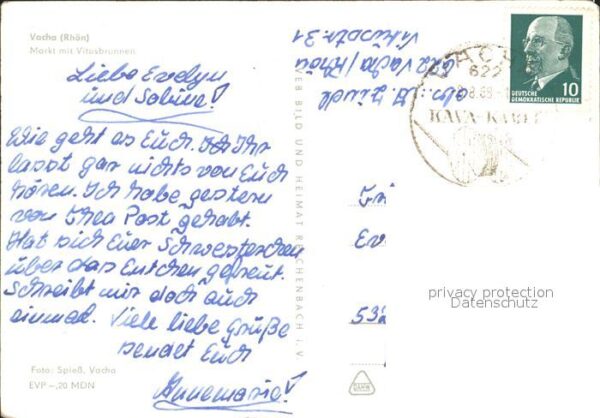 Vacha (Rhön)
Markt mit Vitusbrunnen
Liebe Evelyn
und Sabine!
Wie geht es Euch. Ihr
lasst gar nichts von Euch
hören. Ich habe gestern
von Thea Post gehabt.
Hat sich Euer Schwesterchen
über das Entchen gefreut.
Schreibt mir doch auch
einmal. Viele liebe Grüße
sendet Euch
Annemarie!
Foto: Spieß, Vacha
EVP -,20 MDN
VEB BILD UND HEIMAT REICHENBACH I. V.
622 Vacha/Rhön
VACHA
622
KAVA-KABEL
10
DEUTSCHE
DEMOKRATISCHE REPUBLIK
Ev
532
privacy protection
Datenschutz